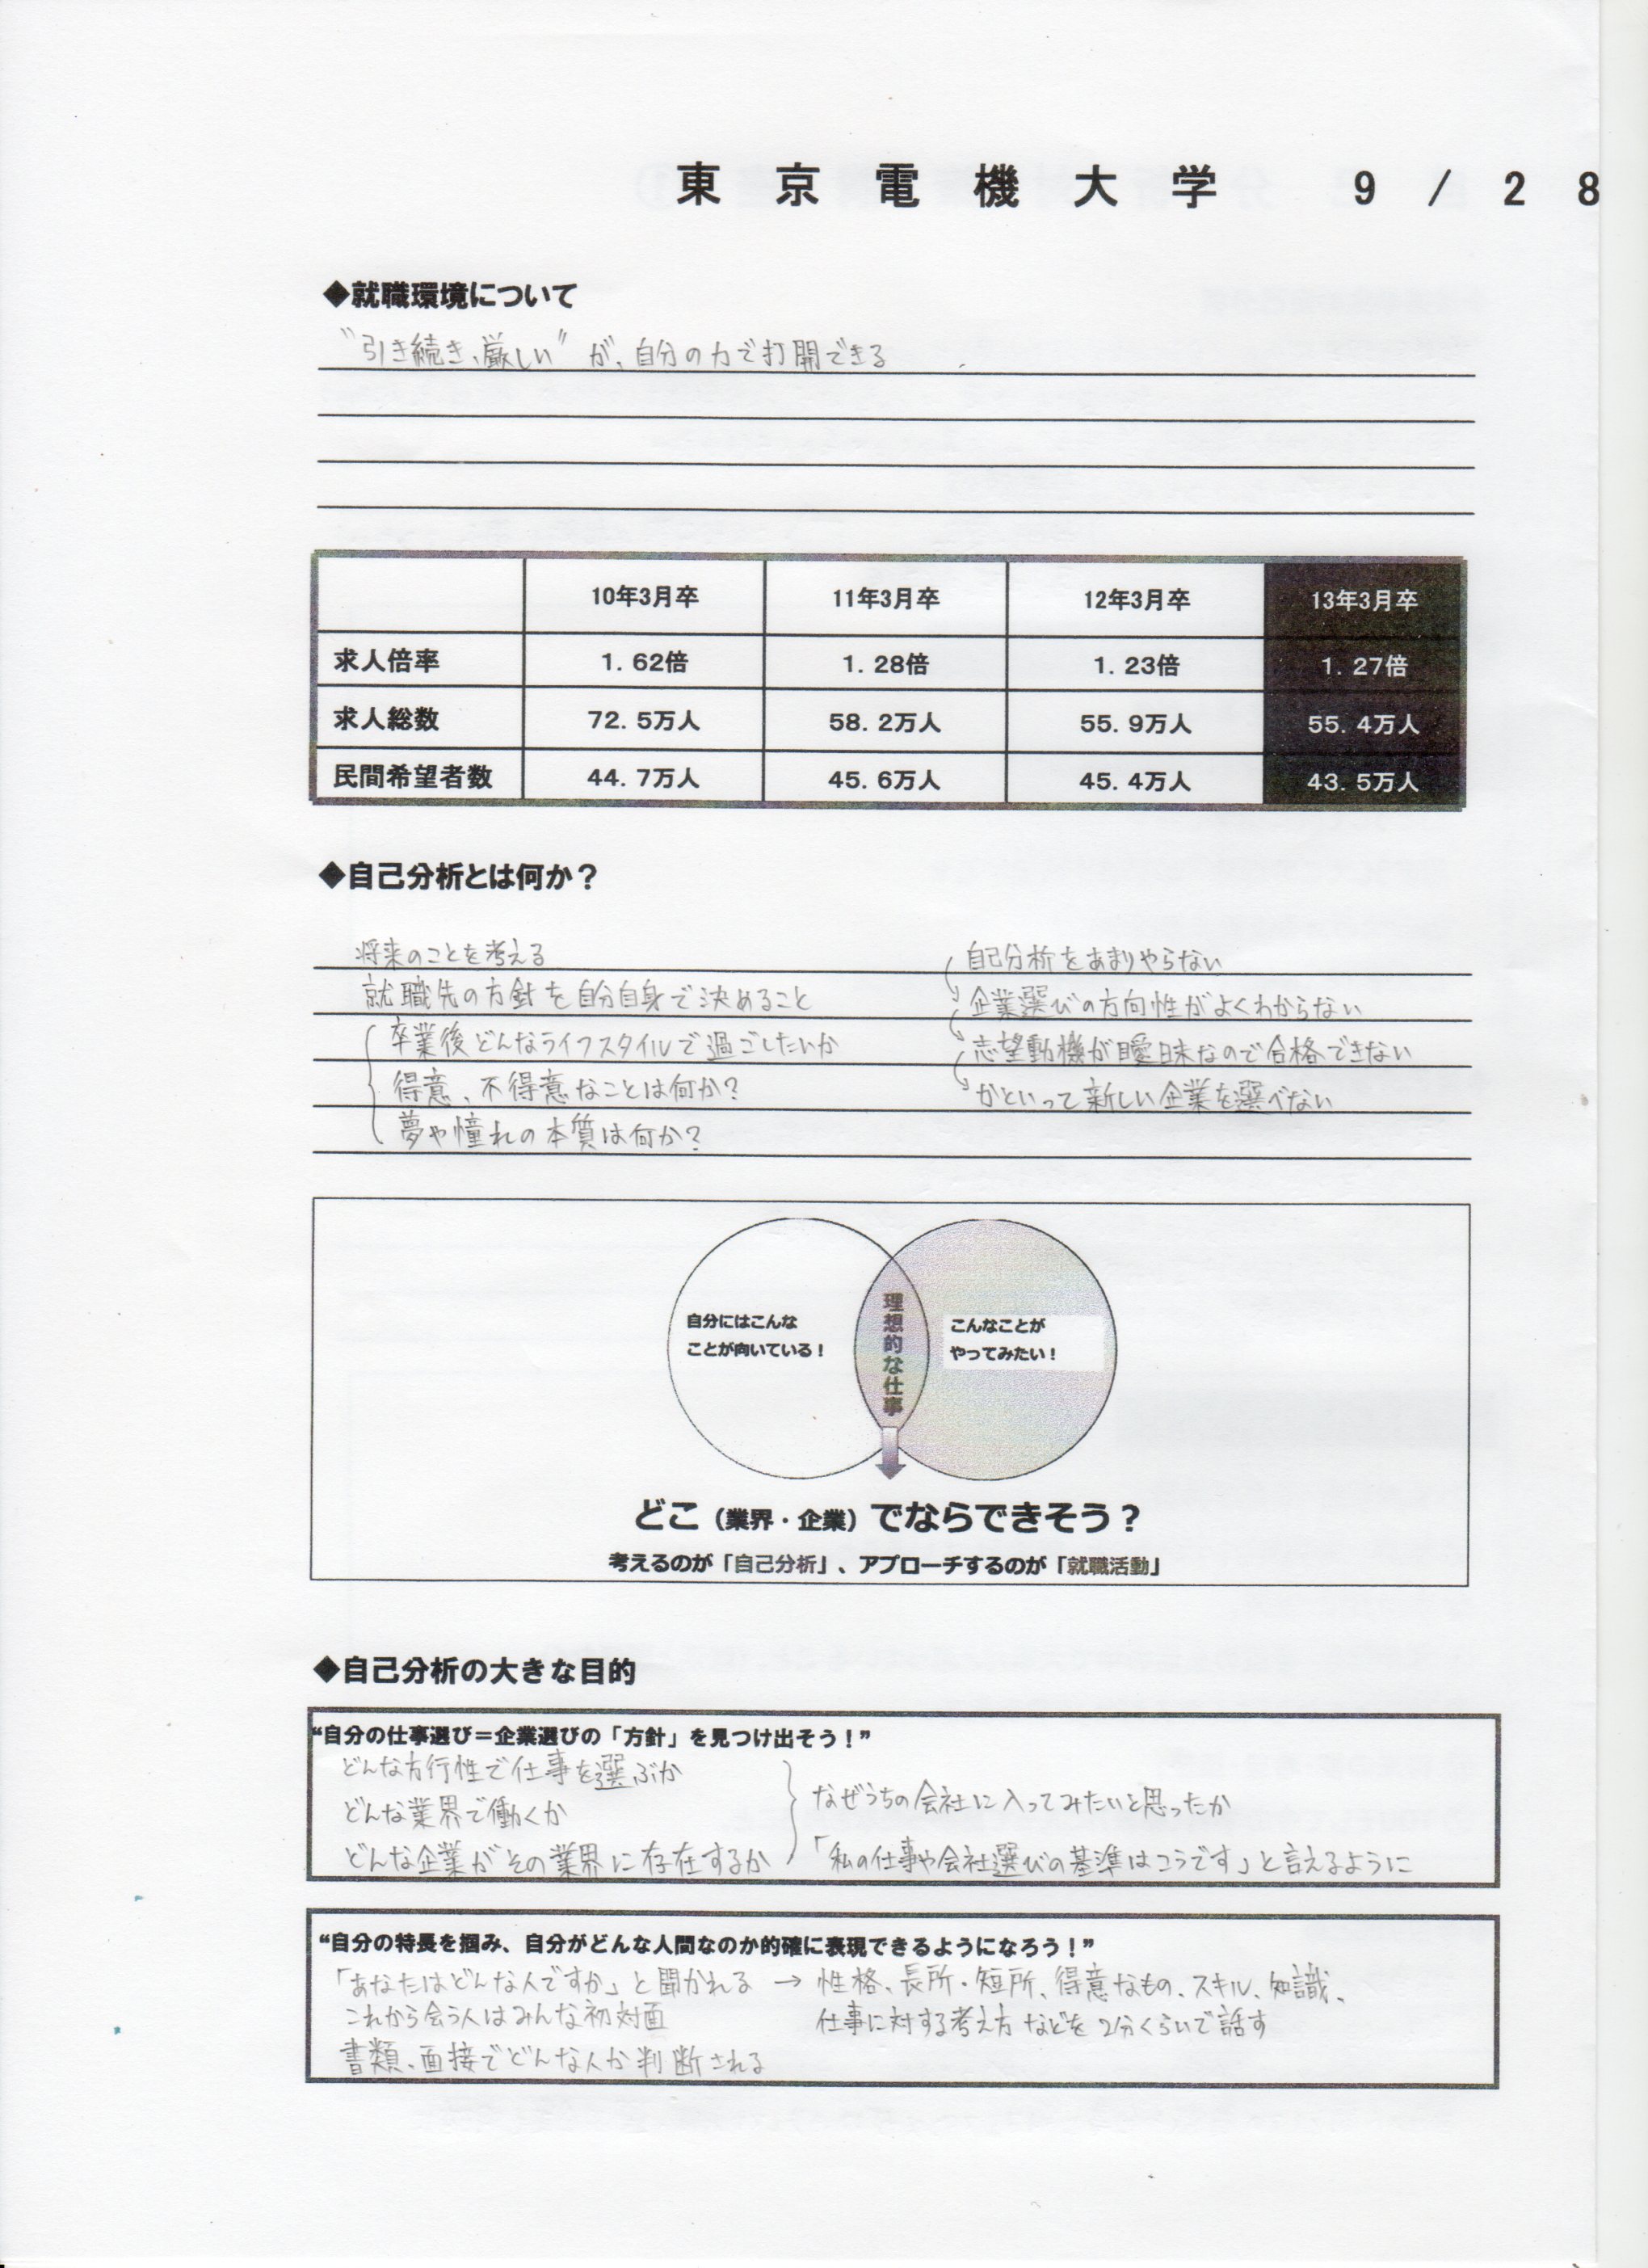 東京電機大学 9/28
◆就職環境について
"引き続き、厳しい"が、自分の力で打開できる
10年3月卒 11年3月卒 12年3月卒 13年3月卒
求人倍率 1.62倍 1.28倍 1.23倍 1.27倍
求人総数 72.5万人 58.2万人 55.9万人 55.4万人
民間希望者数 44.7万人 45.6万人 45.4万人 43.5万人
◆自己分析とは何か?
将来のことを考える
就職先の方針を自分自身で決めること
卒業後どんなライフスタイルで過ごしたいか
得意、不得意なことは何か?
夢や憧れの本質は何か?
自己分析をあまりやらない
企業選びの方向性がよくわからない
志望動機が曖昧なので合格できない
かといって新しい企業を選べない
自分にはこんな
ことが向いている!
理想的な仕事
こんなことが
やってみたい!
どこ(業界・企業)でならできそう?
考えるのが「自己分析」、アプローチするのが「就職活動」
◆自己分析の大きな目的
“自分の仕事選び=企業選びの「方針」を見つけ出そう!”
どんな方行性で仕事を選ぶか
どんな業界で働くか
どんな企業がその業界に存在するか
なぜうちの会社に入ってみたいと思ったか
「私の仕事や会社選びの基準はこうです」と言えるように
“自分の特長を掴み、自分がどんな人間なのか的確に表現できるようになろう!”
「あなたはどんな人ですか」と聞かれる → 性格、長所・短所、得意なもの、スキル、知識、
これから会う人はみんな初対面 仕事に対する考え方などを2分くらいで話す
書類、面接でどんな人か判断される